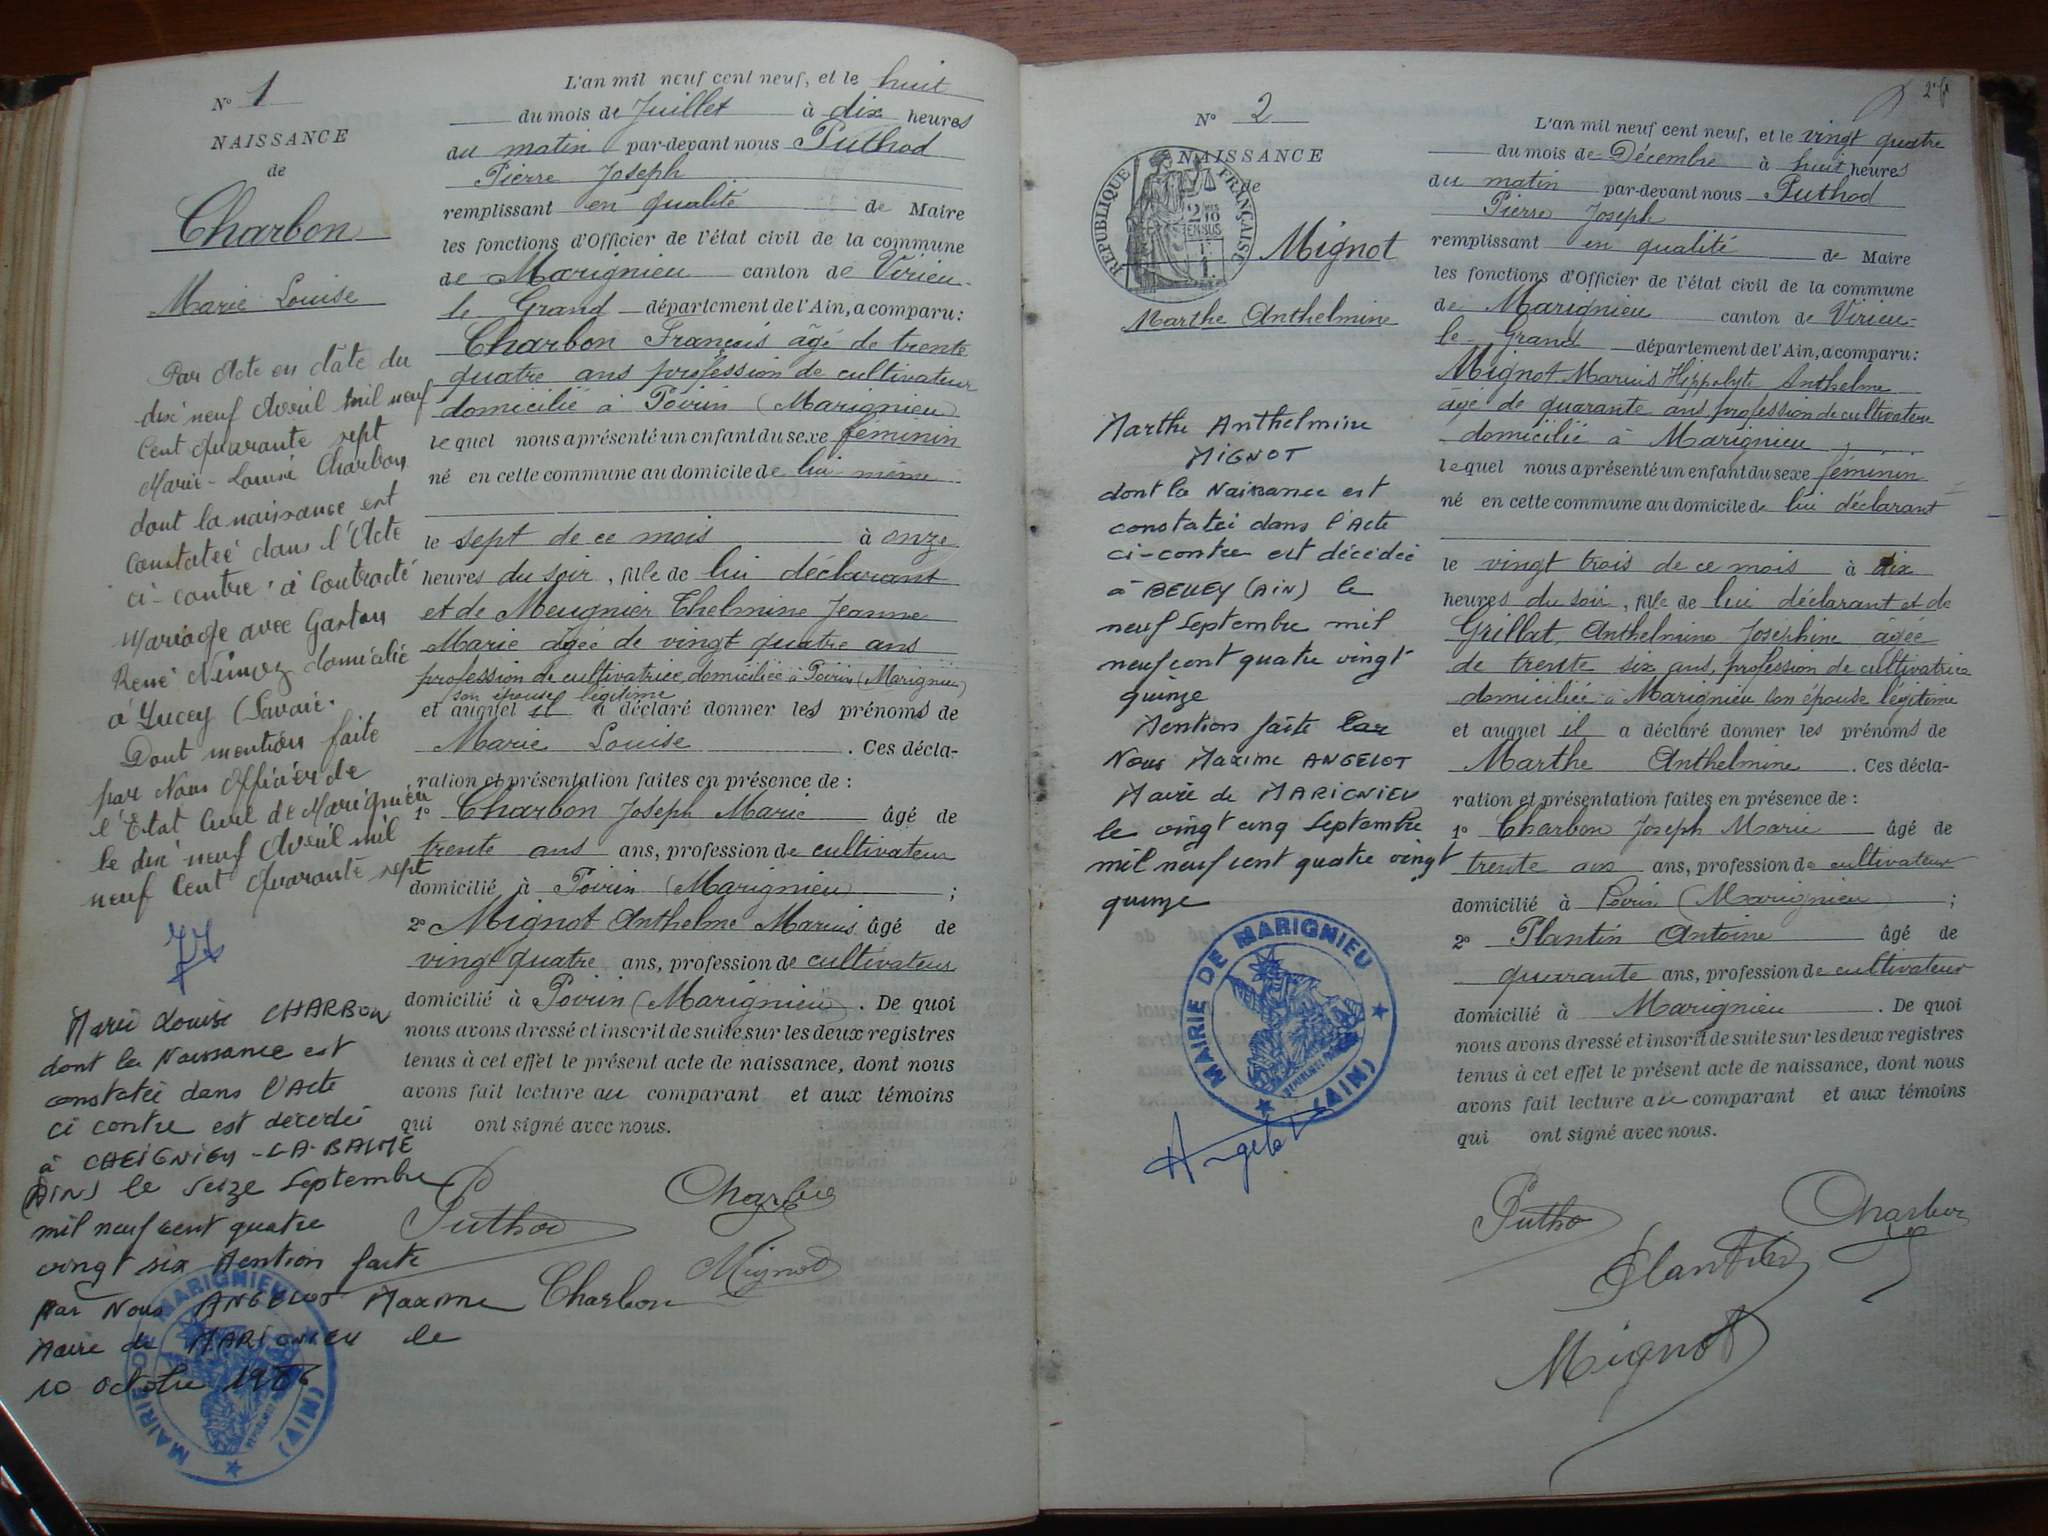 N° 1
NAISSANCE
de
Charbon
Marie Louise
Par Acte en date du
dix neuf Avril mil neuf
Cent quarante sept
Marie-Louise Charbon
dont la naissance est
constatée dans l'Acte
ci-contre à contracté
Mariage avec Gaston
René domicilié
à Yucey (Savoie.
Dont mention faite
par Nous Officier de
l'Etat Civil de Marignieu
le dix neuf Avril mil
neuf Cent Quarante sept
Marie Louise CHARBON
dont la Naissance est
constatée dans l'Acte
ci contre est décédée
à CHEIGNIEU-LA-BALME
(AIN) le seize Septembre
mil neuf cent quatre
vingt six Mention faite
par Nous ANGELOT Maxime
Maire de MARIGNIEU le
10 octobre 1986
MAIRIE DE MARIGNIEU (AIN)
L'an mil neuf cent neuf, et le huit
du mois de Juillet à dix heures
du matin par-devant nous Puthod
Pierre Joseph
remplissant en qualité de Maire
les fonctions d'Officier de l'état civil de la commune
de Marignieu canton de Virieu-
le Grand département de l'Ain, a comparu:
Charbon François âgé de trente
quatre ans profession de cultivateur
domicilié à Poirin (Marignieu)
lequel nous a présenté un enfant du sexe féminin
né en cette commune au domicile de lui-même
le sept de ce mois à onze
heures du soir, fille de lui déclarant
et de Meugnier Thelmine Jeanne
Marie âgée de vingt quatre ans
profession de cultivatrice domiciliée à Poirin (Marignieu)
son épouse légitime
et auquel il a déclaré donner les prénoms de
Marie Louise . Ces décla-
ration et présentation faites en présence de :
1° Charbon Joseph Marie âgé de
trente ans ans, profession de cultivateur
domicilié à Poirin (Marignieu) ;
2° Mignot Anthelme Marius âgé de
vingt quatre ans, profession de cultivateur
domicilié à Poirin (Marignieu) . De quoi
nous avons dressé et inscrit de suite sur les deux registres
tenus à cet effet le présent acte de naissance, dont nous
avons fait lecture au comparant et aux témoins
qui ont signé avec nous.
Puthod
Charbon
Mignot
Charbon
N° 2
NAISSANCE
de
RÉPUBLIQUE FRANÇAISE
Mignot
Marthe Anthelmine
Marthe Anthelmine
MIGNOT
dont la Naissance est
constatée dans l'Acte
ci-contre est décédée
à BELLEY (AIN) le
neuf Septembre mil
neuf cent quatre vingt
quinze
Mention faite Par
Nous Maxime ANGELOT
Maire de MARIGNIEU
le vingt cinq Septembre
mil neuf cent quatre vingt
quinze
MAIRIE DE MARIGNIEU (AIN)
Angelot
L'an mil neuf cent neuf, et le vingt quatre
du mois de Décembre à huit heures
du matin par-devant nous Puthod
Pierre Joseph
remplissant en qualité de Maire
les fonctions d'Officier de l'état civil de la commune
de Marignieu canton de Virieu-
le-Grand département de l'Ain, a comparu:
Mignot Marius Hippolyte Anthelme
âgé de quarante ans profession de cultivateur
domicilié à Marignieu
lequel nous a présenté un enfant du sexe féminin
né en cette commune au domicile de lui déclarant
le vingt trois de ce mois à dix
heures du soir, fille de lui déclarant et de
Grillat Anthelmine Joséphine âgée
de trente six ans, profession de cultivatrice
domiciliée à Marignieu son épouse légitime
et auquel il a déclaré donner les prénoms de
Marthe Anthelmine . Ces décla-
ration et présentation faites en présence de :
1° Charbon Joseph Marie âgé de
trente ans ans, profession de cultivateur
domicilié à Poirin (Marignieu) ;
2° Plantin Antoine âgé de
quarante ans, profession de cultivateur
domicilié à Marignieu . De quoi
nous avons dressé et inscrit de suite sur les deux registres
tenus à cet effet le présent acte de naissance, dont nous
avons fait lecture au comparant et aux témoins
qui ont signé avec nous.
Puthod
Charbon
Plantin
Mignot